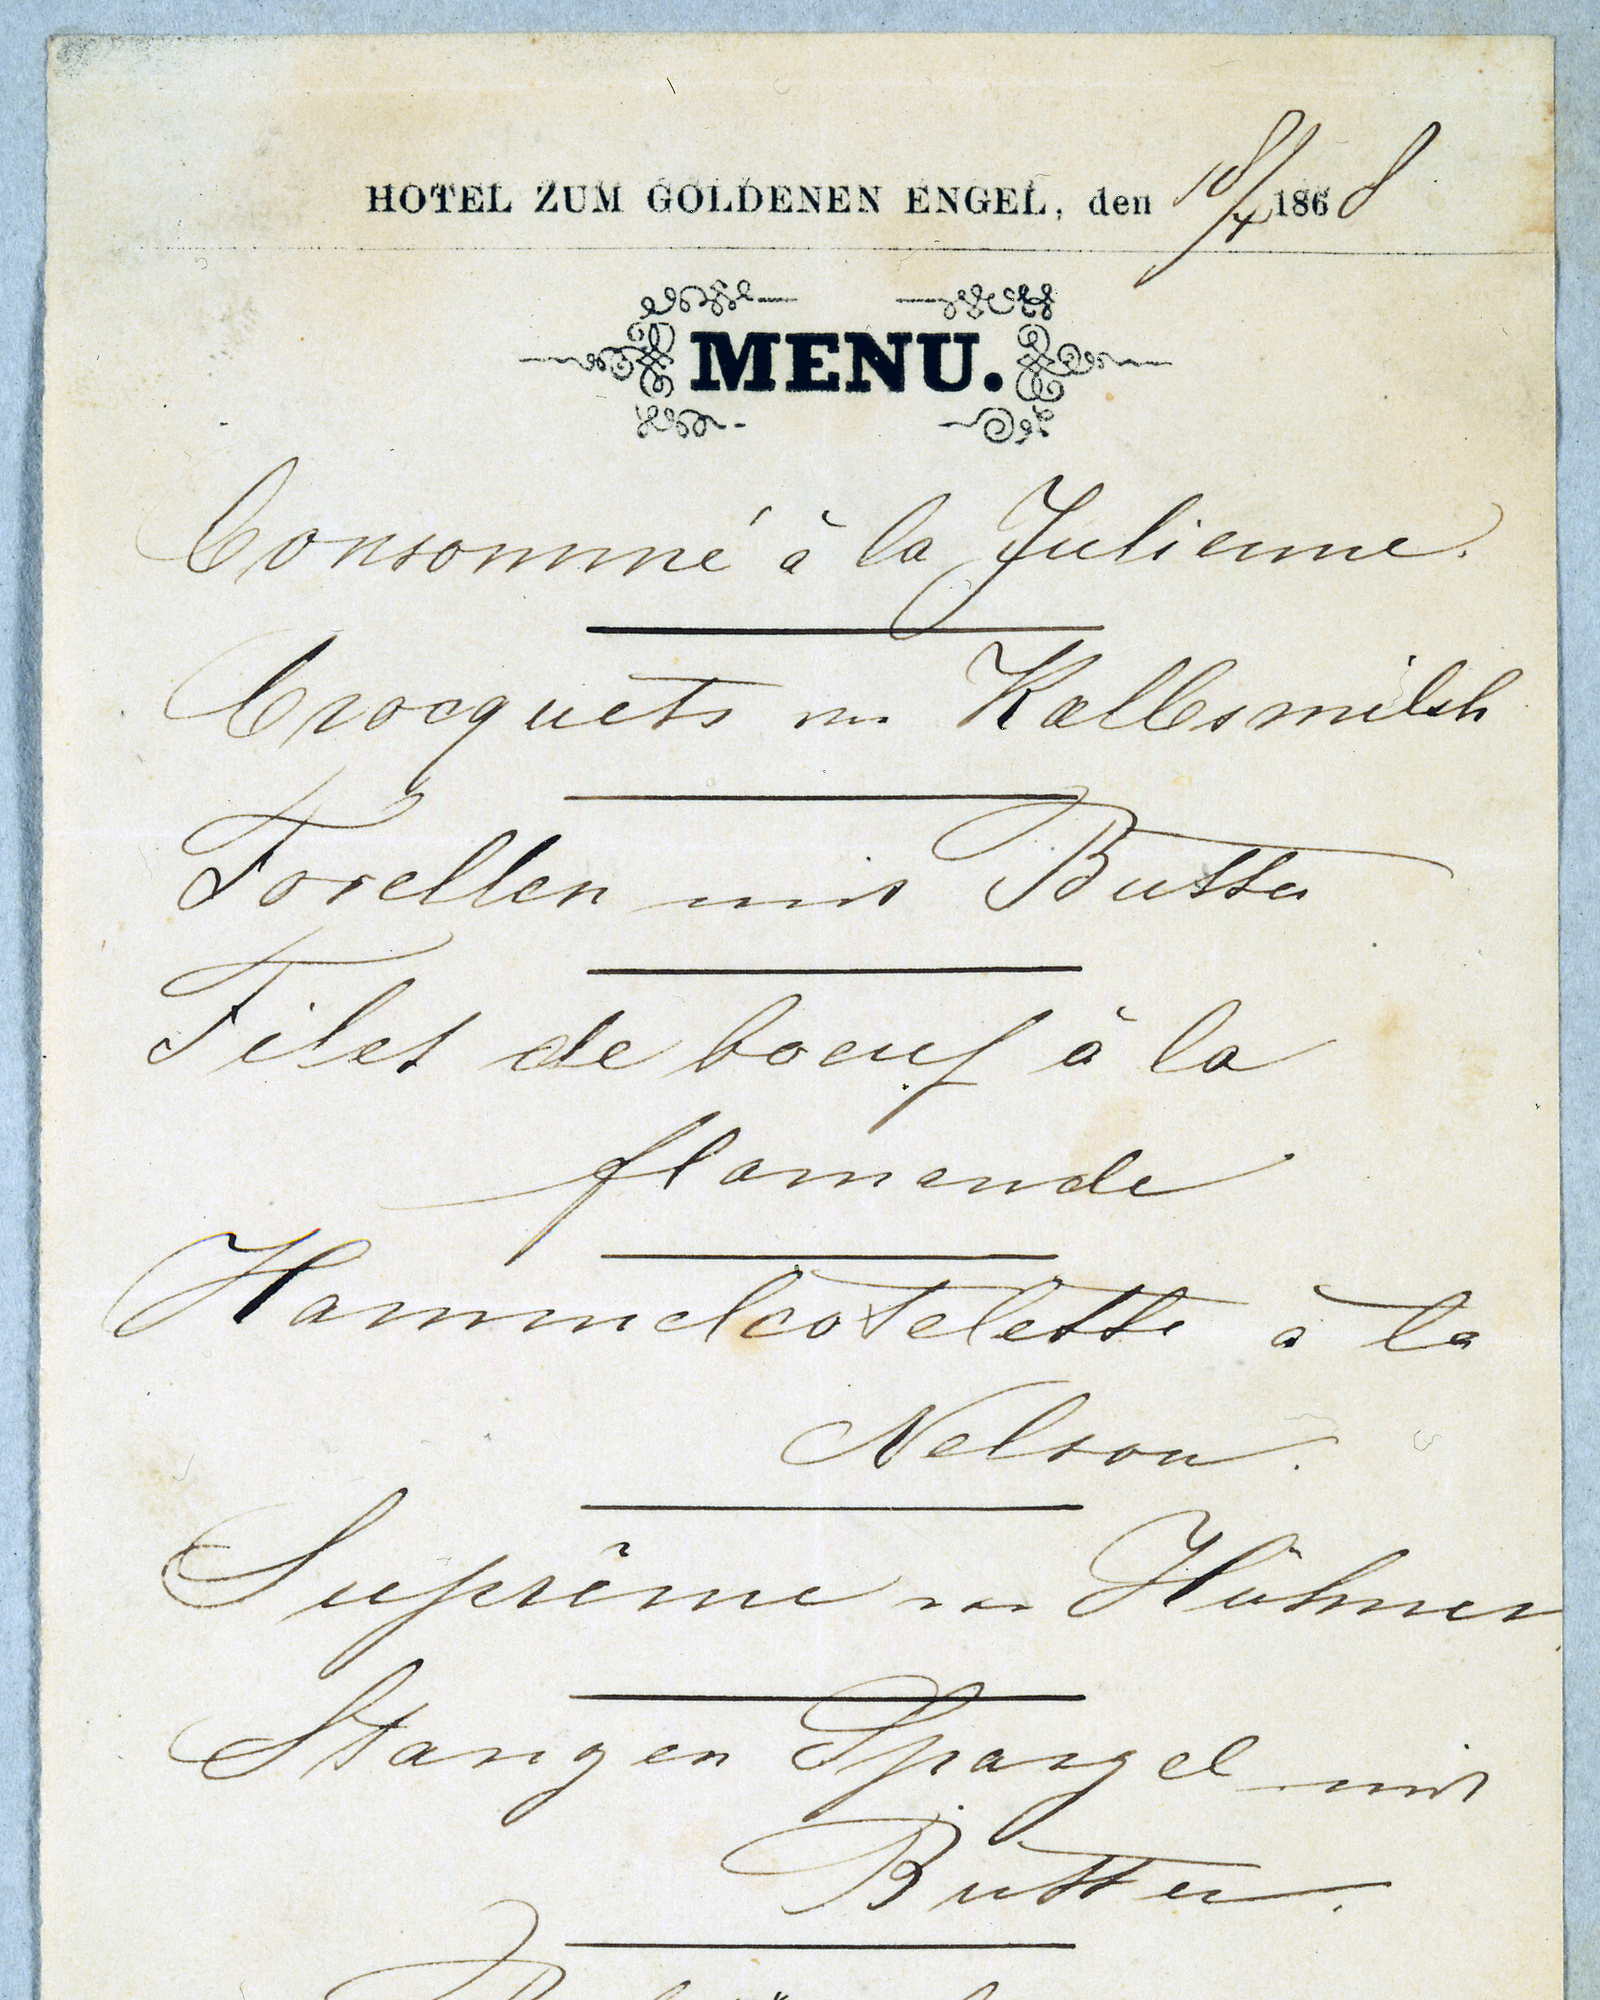 HOTEL ZUM GOLDENEN ENGEL, den 18/4 1868
MENU.
Consommé à la Julienne.
Crocquets von Kalbsmilch
Forellen mit Butter
Filet de boeuf à la
flamande
Hammelcotelette à la
Nelson.
Suprême von Hühner
Stangen Spargel mit
Butter.